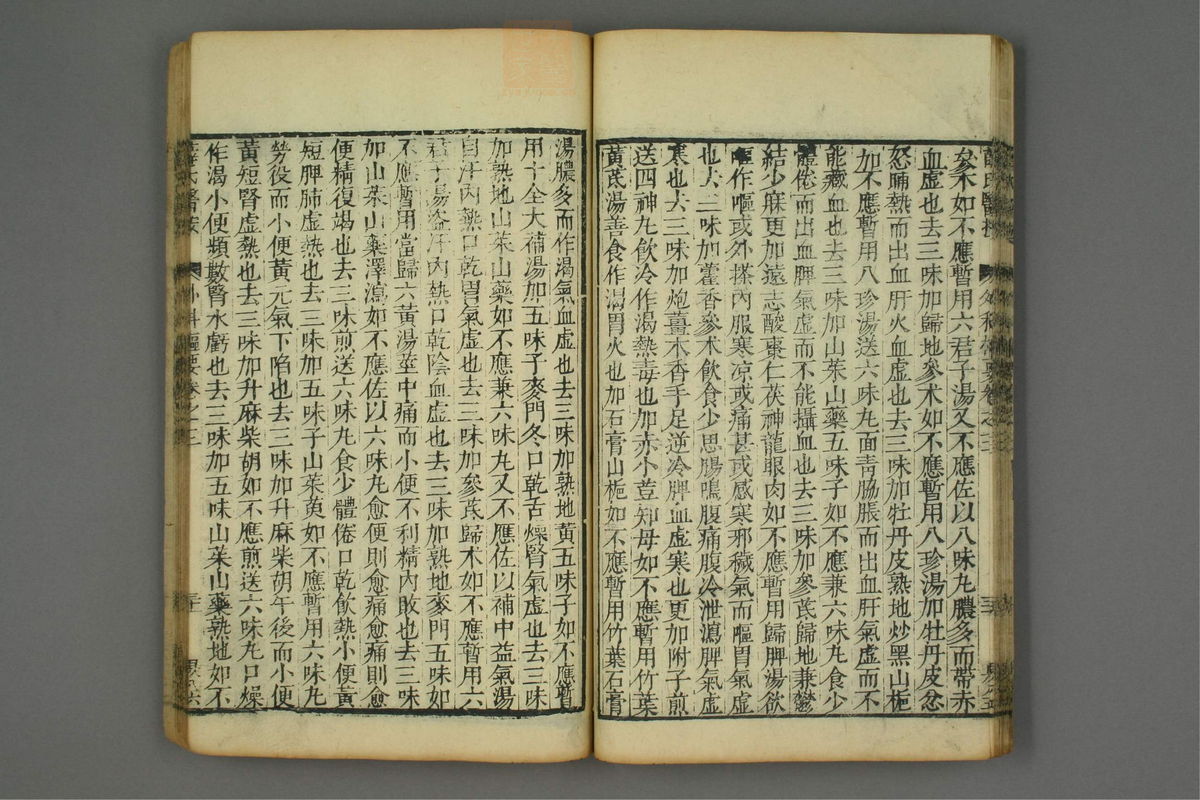 矣木如不應暫用六君子湯又不應佐以八味丸膿多而帶赤
血虛也去三味加歸地參术如不應暫用八珍湯加牡丹皮忿
怒晡熱而出血肝火血虛也去三味加牡丹皮熟地炒黑山梔
加不應暫用八珍湯送六味丸面靑脇脹而出血肝氣虛而不
能藏血也去三味加山茱山藥五味子如不應兼六味丸食少
體倦而出血脾氣虛而不能攝血也去三味加參芪歸地兼鬱
結少寐更加遠志酸棗仁茯神龍眼肉如不應暫用歸脾湯欲
嘔作嘔或外搽內服寒凉或痛甚或感寒邪穢氣而嘔胃氣虛
也去三味加藿香參术飲食少思腸鳴腹痛腹冷泄瀉脾氣虛
寒也去三味加炮薑木香手足逆冷脾血虛寒也更加附子煎
送四神丸飲冷作渴熱毒也加赤小荳知母如不應暫用竹葉
黃芪湯善食作渴胃火也加石膏山梔如不應暫用竹葉石膏
湯膿多而作渴氣血虛也去三味加熟地黃五味子如不應暫
用十全大補湯加五味子麥門冬口乾舌燥腎氣虛也去三味
加熟地山茱山藥如不應兼六味丸又不應佐以補中益氣湯
自汗內熱口乾胃氣虛也去三味加參芪歸木如不應暫用六
君子湯盜汗內熱口乾陰血虛也去三味加熟地麥門五味如
不應暫用當歸六黃湯莖中痛而小便不利精內敗也去三味
加山茱山藥澤瀉如不應佐以六味丸愈便則愈痛愈痛則愈
便精復竭也去三味煎送六味丸食少體倦口乾飲熱小便黃
短脾肺虛熱也去三味加五味子山茱萸如不應暫用六味丸
勞役而小便黃元氣下陷也去二味加升麻柴胡午後而小便
黃短腎虛熱也去三味加升麻柴胡如不應煎送六味丸口燥
作渴小便頻數腎水虧也去三味加五味山茱山藥熟地如不
薛氏醫按 外科樞要卷之三 三十一